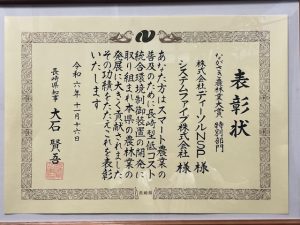 表彰状
ながさき農林業大賞 特別部門
株式会社ディーソルNSP 様
システムファイブ株式会社 様
あなた方はスマート農業の
普及のために長崎型低コスト
統合環境制御装置の開発に
取り組まれ本県の農林業の
発展に大きく貢献されました
その功績をたたえこれを表彰
いたします
令和六年十一月十六日
長崎県知事 大石賢吾
長崎県